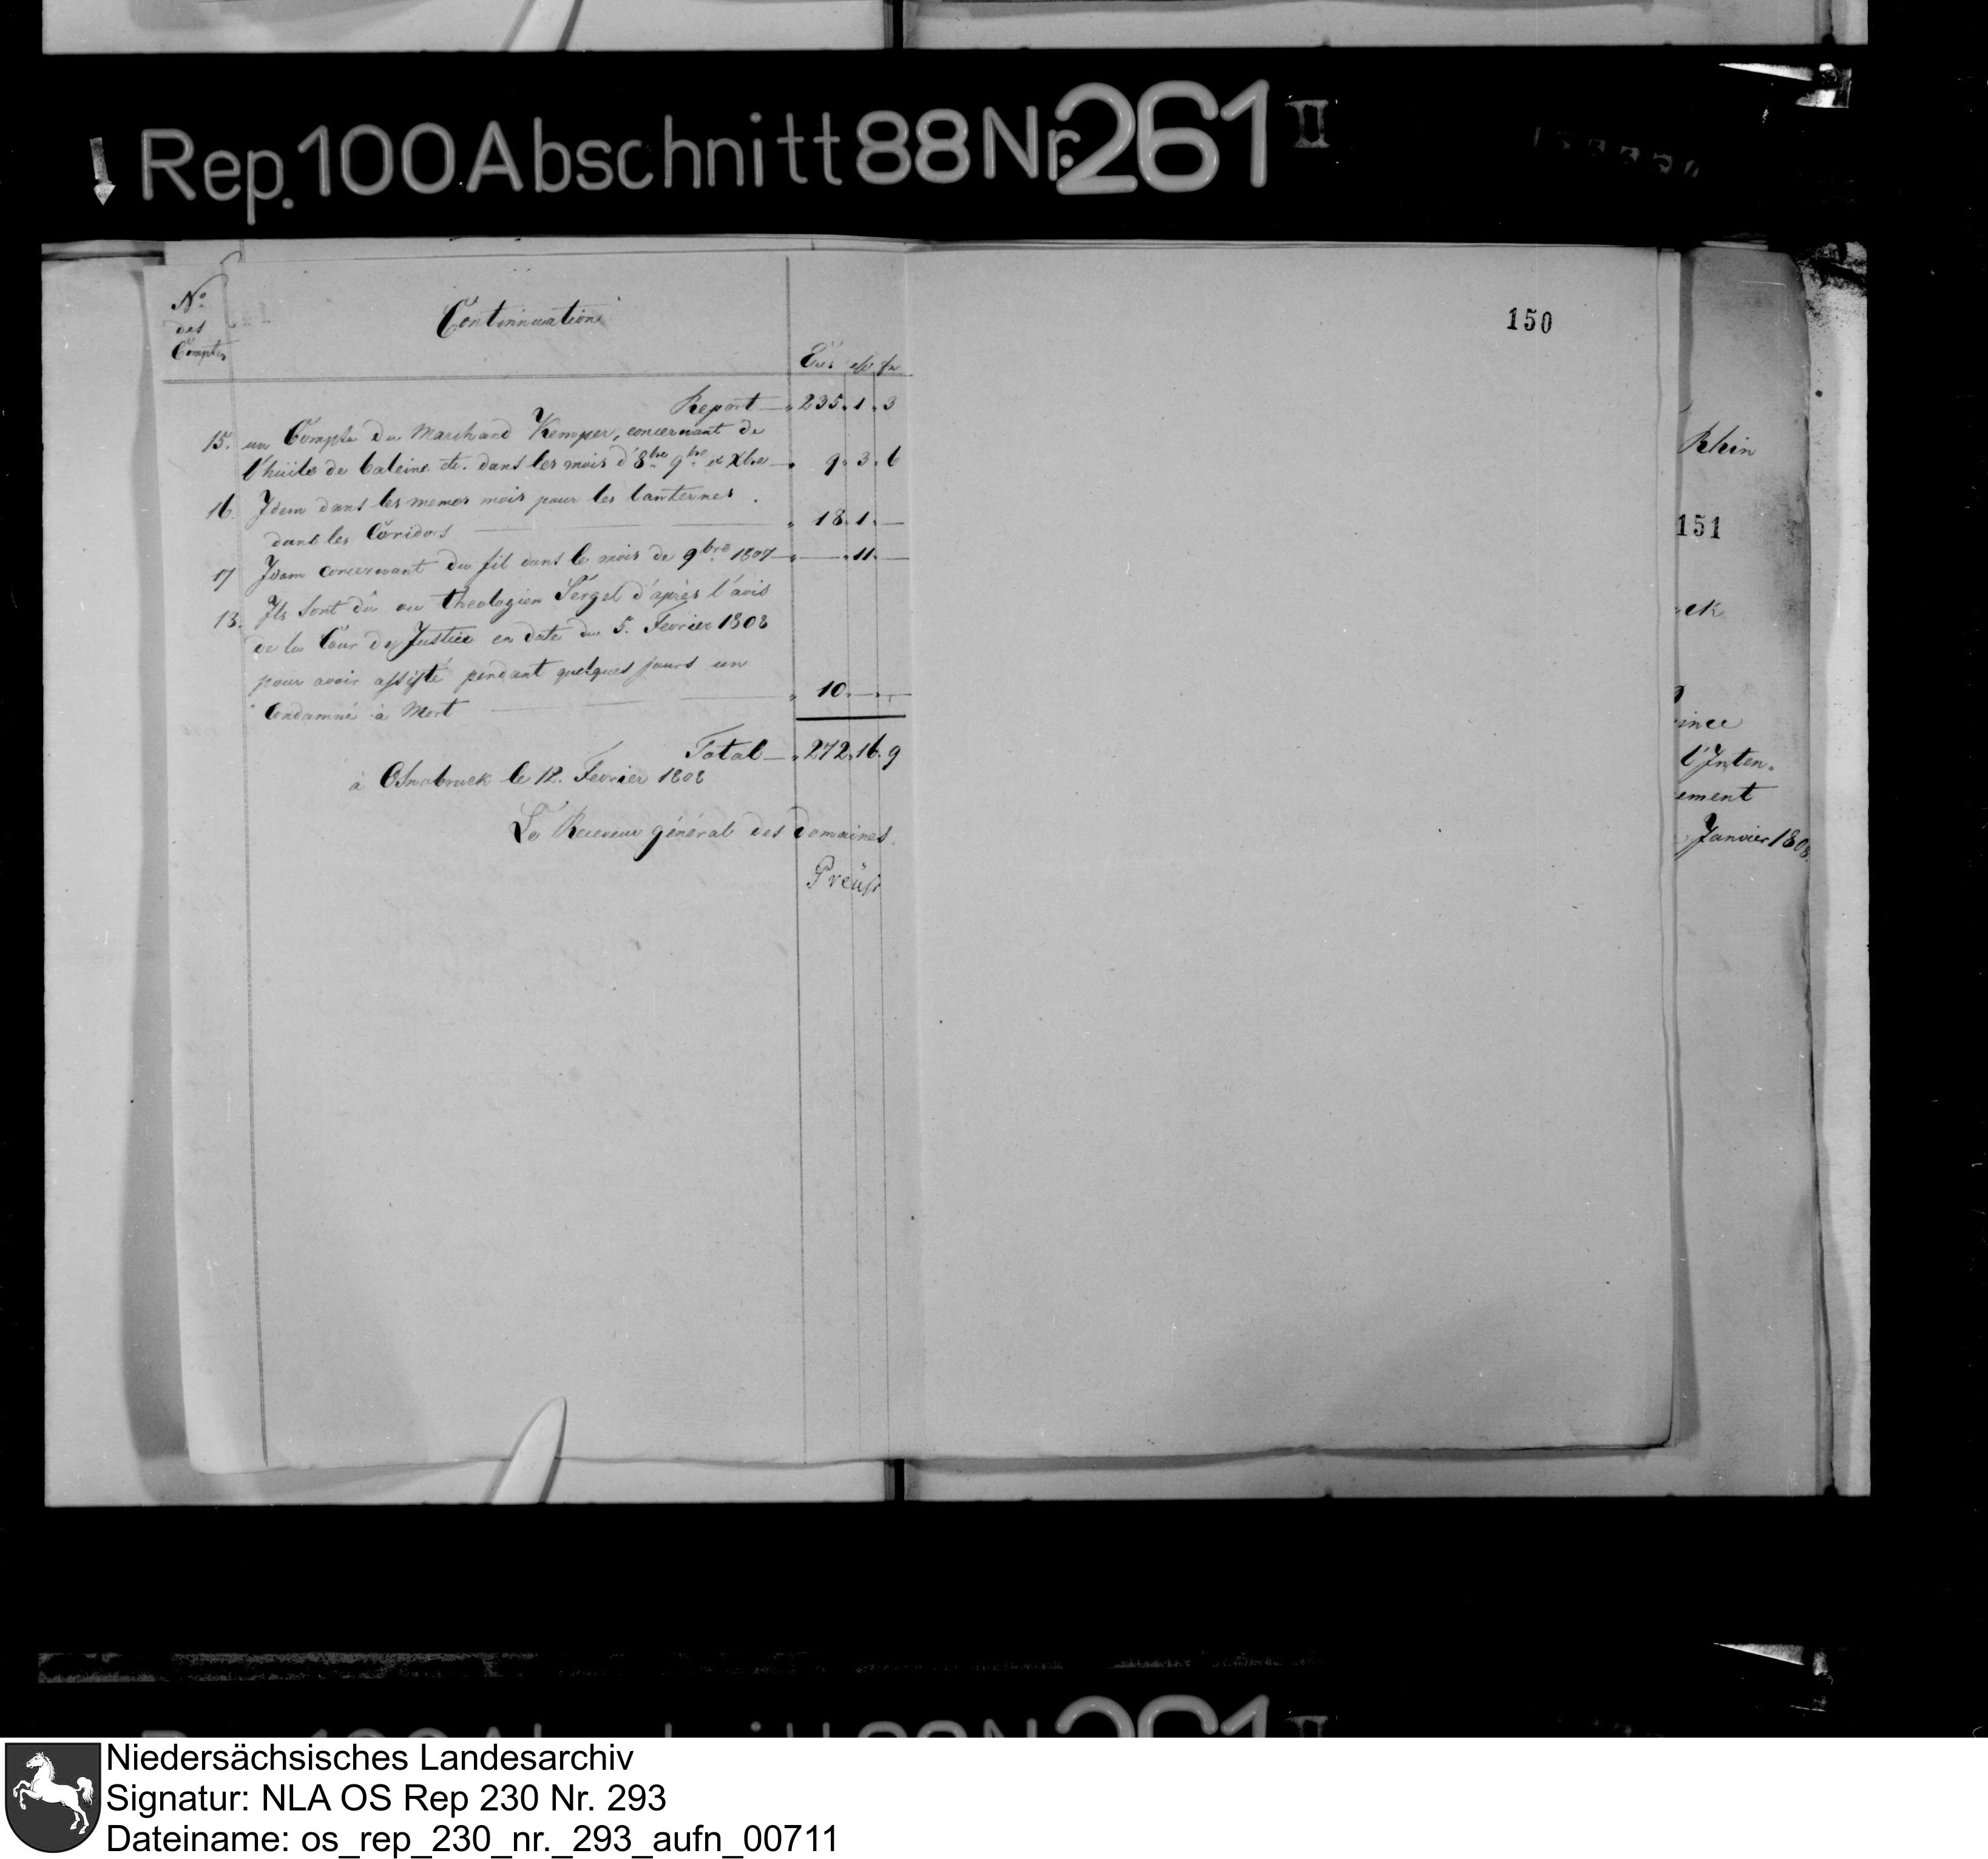 Rep. 100 Abschnitt 88 Nr. 261 II
No
des
Comptes
Continuation
150
Report — 235. 1. 3
15. un Compte du Marchand Kemper, concernant de
l'huile de baleine etc. dans les mois d'8bre 9bre et Xbre — 9. 3. 6
16. Idem dans les memes mois pour les lanternes
dans les Coridors — 18. 1. —
17 Idem concernant du fil dans le mois de 9bre 1807 — — . 11. —
18. Ils sont dû au theologien Sergel d'après l'avis
de la Cour de Justice en date du 5. Fevrier 1808
pour avoir assisté pendant quelques jours un
Condamné à Mort — 10. — . —
Total — 272. 16. 9
à Osnabruck le 12. Fevrier 1808
Le Receveur général des domaines.
Preüß
Rhin
151
ck
ince
l'Inten-
ement
Janvier 1808.
Niedersächsisches Landesarchiv
Signatur: NLA OS Rep 230 Nr. 293
Dateiname: os_rep_230_nr._293_aufn_00711